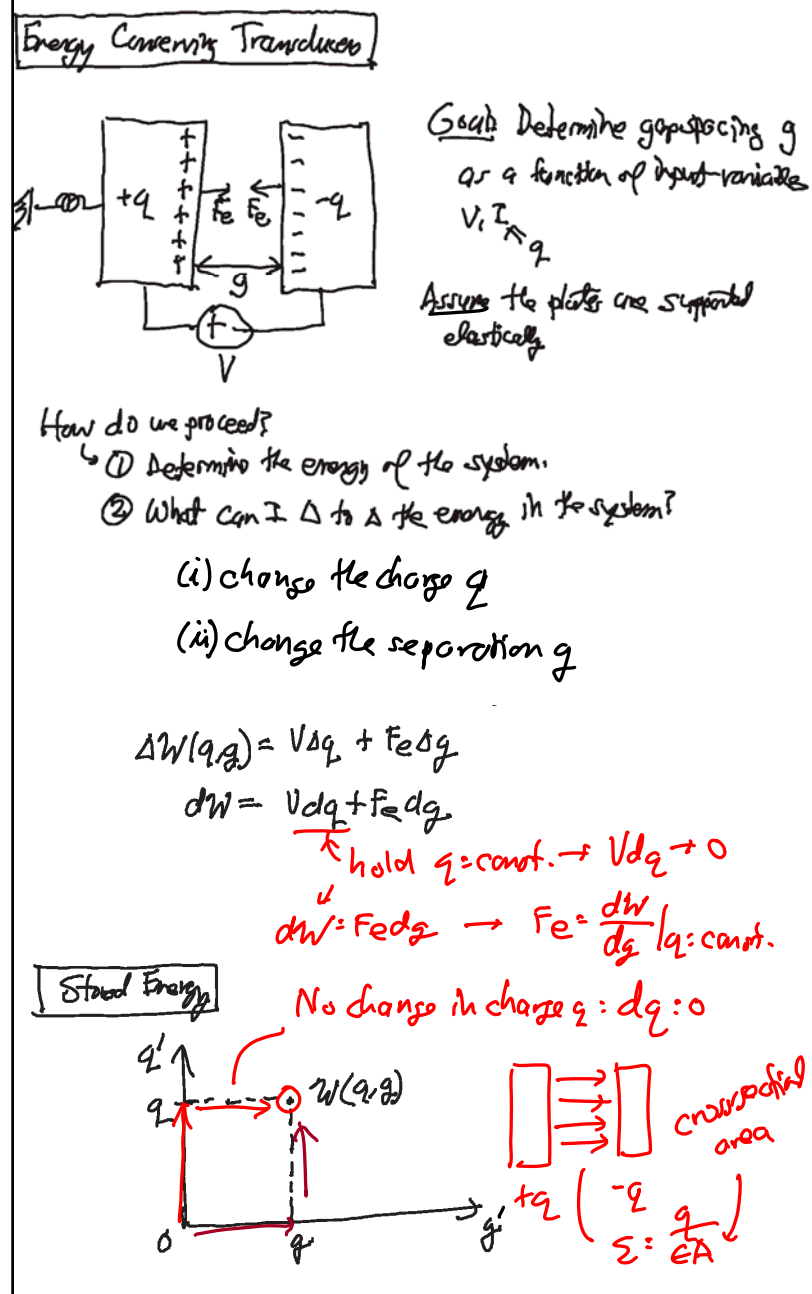 Energy Conserving Transducers
Goal: Determine gap spacing g
as a function of input variables
V, I
q
Assume the plates are supported
elastically
+q
+
+
+
+
+
+
Fe
Fe
-
-
-
-
-
-
-
-q
g
+
V
How do we proceed?
① Determine the energy of the system.
② What can I Δ to Δ the energy in the system?
(i) change the charge q
(ii) change the separation g
ΔW(q,g) = VΔq + FeΔg
dW = Vdq + Fe dg
hold q = const. → Vdq → 0
dW = Fe dg → Fe = dW/dg |q = const.
Stored Energy
No change in charge q : dq = 0
q'
q
W(q,g)
0
g
g'
cross sectional
area
+q
-q
Σ = q/εA